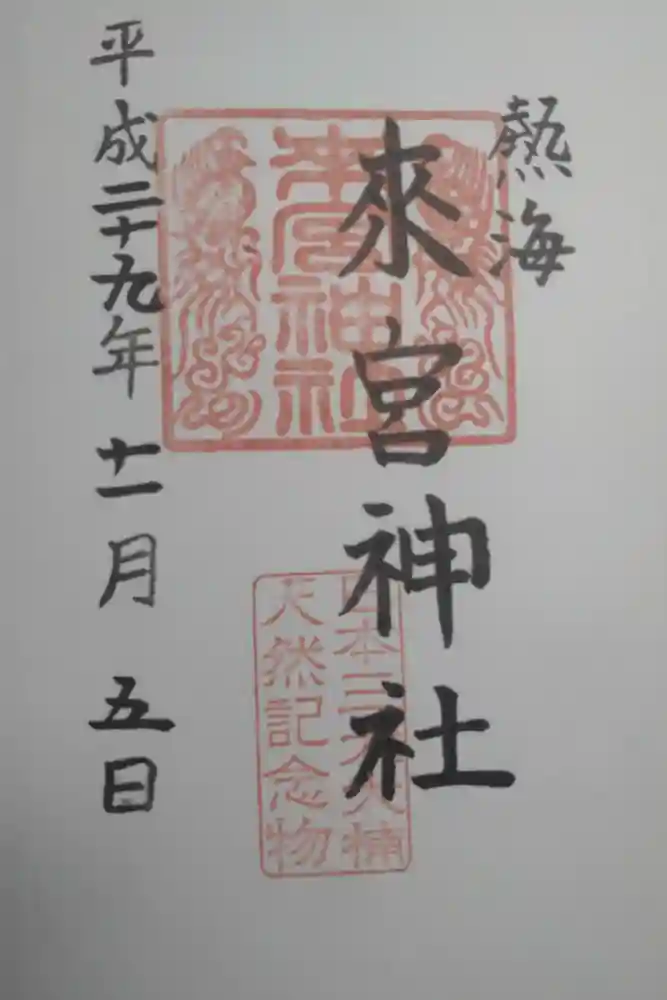 熱海
來宮神社
來宮神社
日本三大大楠
天然記念物
平成二十九年十一月五日